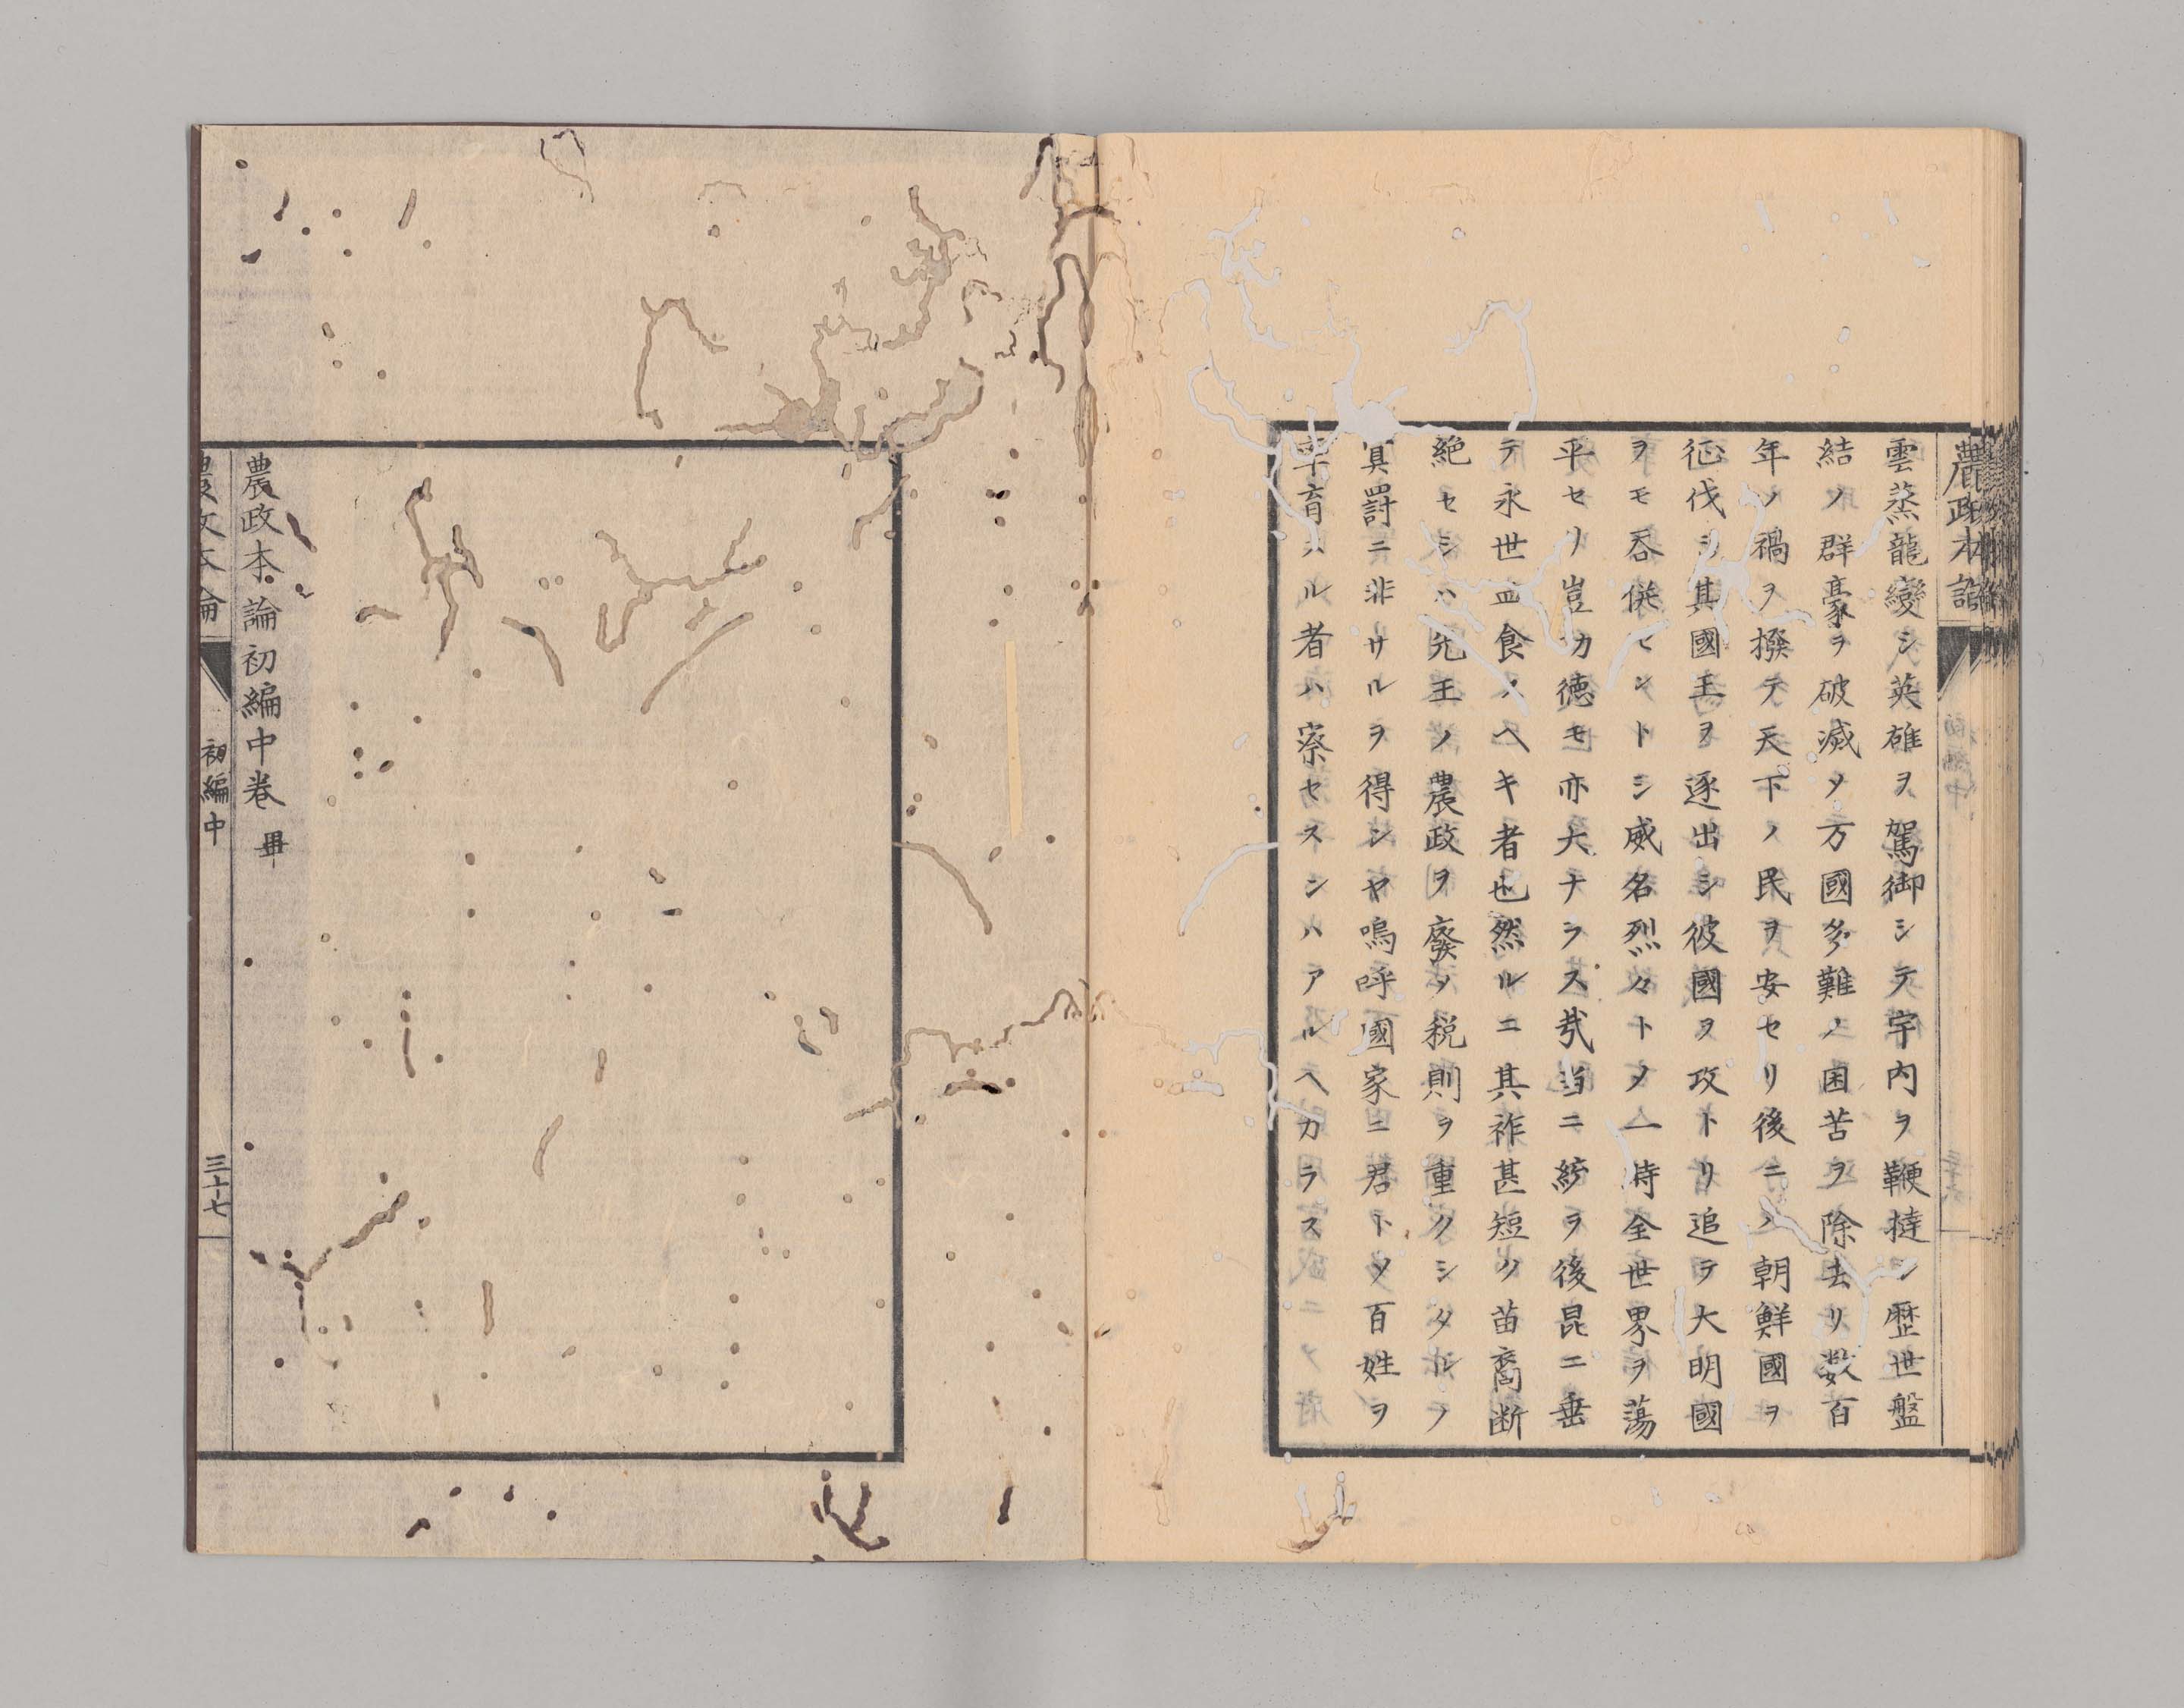 農政本論
雲蒸龍變シ英雄ヲ駕御シテ宇内ヲ鞭撻シ歴世盤
結ノ群豪ヲ破滅〆万國多難ノ困苦ヲ除去リ数百
年ノ禍ヲ撥テ天下ノ民ヲ安セリ後ニハ朝鮮國ヲ
征伐シ其國王ヲ逐出シ彼國ヲ攻トリ追テ大明國
ヲモ呑併セントシ威名烈々トヲ一時全世界ヲ蕩
平セリ豈功徳モ亦大ナラス哉当ニ統ヲ後昆ニ垂
テ永世血食スヘキ者也然ルニ其祚甚短ク苗裔断
絶セシハ先王ノ農政ヲ廢〆税則ヲ重クシタルノ
冥罸ニ非サルヲ得シヤ嗚呼國家ニ君ト〆百姓ヲ
率育スル者ハ察セスンハアルヘカラス
農政本論初編中巻 畢
農政本論
初編中
三十七